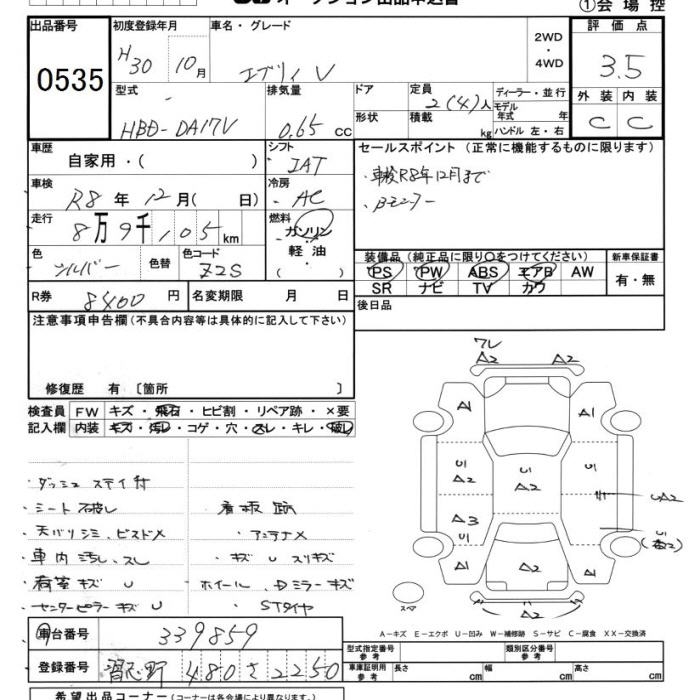 オークション出品申込書
①会場控
出品番号
0535
初度登録年月
H30 10月
車名・グレード
エブリィ V
2WD
・
4WD
評価点
3.5
型式
HBD-DA17V
排気量
0.65 CC
ドア
形状
定員
2(4)人
積載
kg
ディーラー・並行
モデル
年式 年
ハンドル 左・右
外装 内装
C C
車歴
自家用・( )
シフト
IAT
セールスポイント (正常に機能するものに限ります)
・車検R8年12月まで
・Bモニター
車検
R8年12月( 日)
冷房
AC
走行
8万9千105km
燃料
ガソリン
軽油
( )
色
シルバー
色替
色コード
Z2S
装備品 (純正品に限り○をつけてください)
PS PW ABS エアB AW
SR ナビ TV カワ
新車保証書
有・無
R券 8400円
名変期限 月 日
後日品
注意事項申告欄 (不具合内容等は具体的に記入して下さい)
修復歴 有 〔箇所 〕
検査員
記入欄
FW キズ・飛石・ヒビ割・リペア跡・×要
内装 キズ・汚レ・コゲ・穴・スレ・キレ・破レ
・ダッシュ ステイ付
・シート破レ
・天バリシミ、ビスドメ
・車内汚レ、スレ
・荷室キズ U
・センターピラーキズ U
・看板跡
・アンテナメ
・キズ U スリキズ
・ホイール、Dミラーキズ
・STタイヤ
ワレ
A2 A2
A1 A1
U1
A2
U1
A2
U1
A3
UA2
U1
A2
A1
A2
A2
スペア
A-キズ E-エクボ U-凹み W-補修跡 S-サビ C-腐食 XX-交換済
車台番号
339859
登録番号
習志野 480 さ 2250
型式指定番号
参考
類別区分番号
車庫証明用
参考
長さ cm
幅 cm
高さ cm
希望出品コーナー (コーナーは各会場により異なります。)